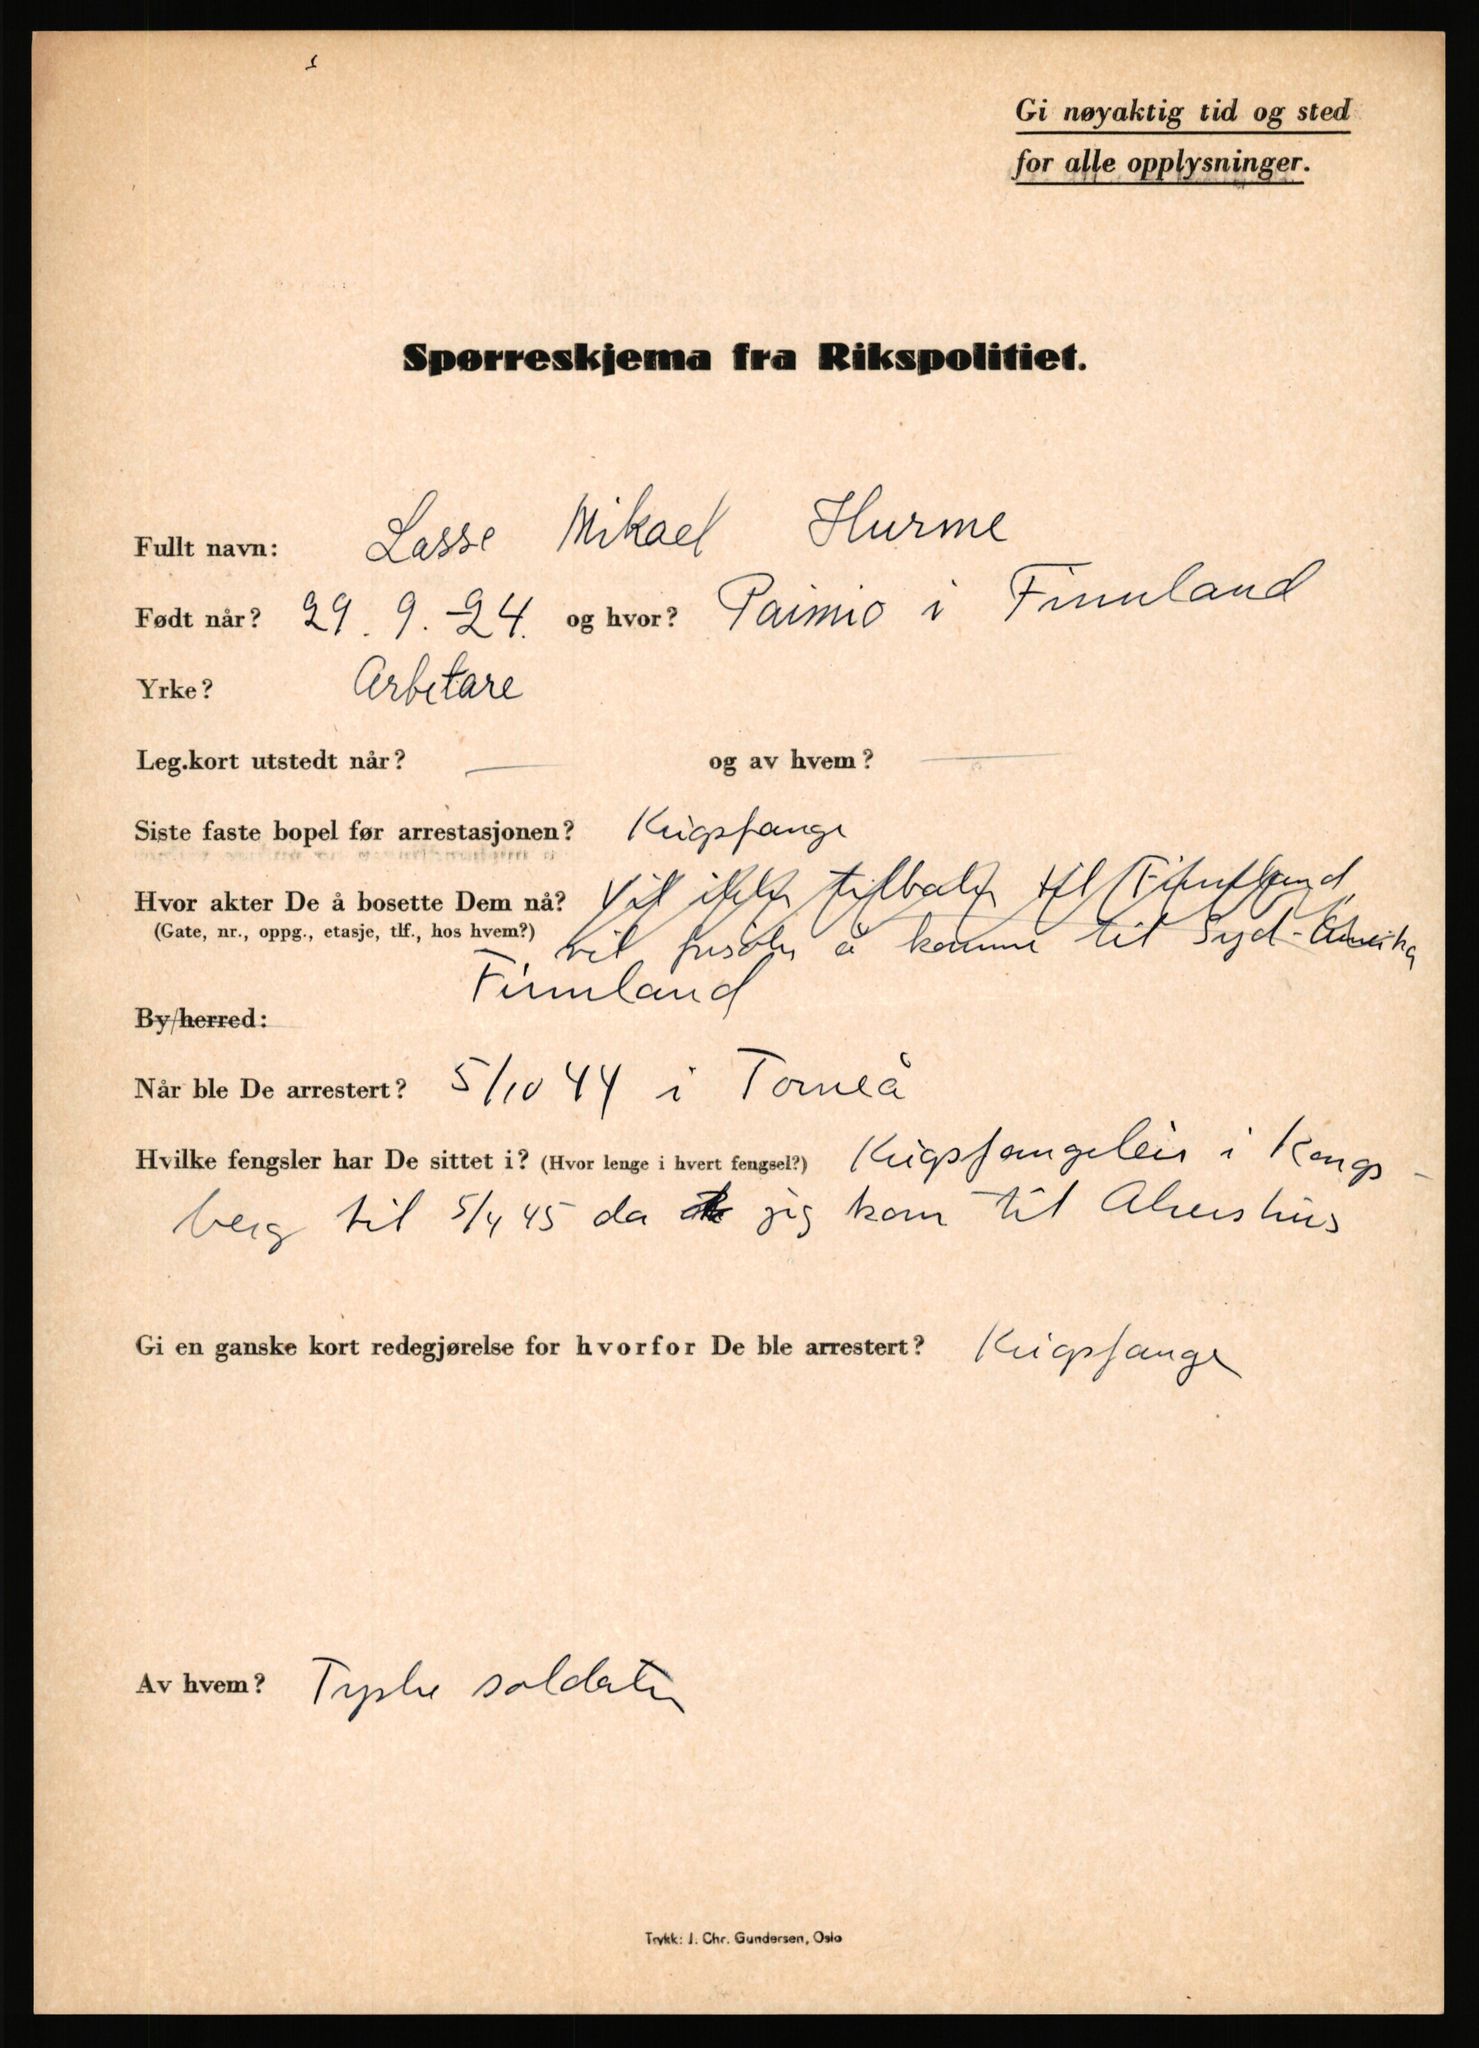 Gi nøyaktig tid og sted
for alle opplysninger.
Spørreskjema fra Rikspolitiet.
Fullt navn: Lasse Mikael Hurme
Født når? 29. 9. 24. og hvor? Paimio i Finnland
Yrke? Arbetare
Leg.kort utstedt når? — og av hvem? —
Siste faste bopel før arrestasjonen? Krigsfange
Hvor akter De å bosette Dem nå? Vil ikke tilbake til Finnland,
(Gate, nr., oppg., etasje, tlf., hos hvem?) vil forsøke å komme til Syd-Amerika
Finnland
By/herred:
Når ble De arrestert? 5/10 44 i Torneå
Hvilke fengsler har De sittet i? (Hvor lenge i hvert fengsel?) Krigsfangeleir i Kongs-
berg til 5/4 45 da jeg kom til Akershus
Gi en ganske kort redegjørelse for hvorfor De ble arrestert? Krigsfange
Av hvem? Tyske soldater
Trykk: J. Chr. Gundersen, Oslo